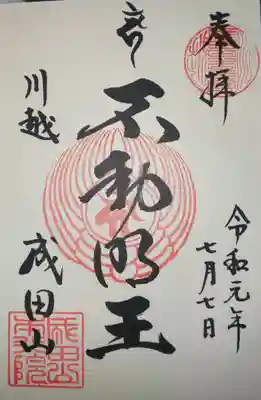 奉拝
令和元年
七月七日
不動明王
川越
成田山